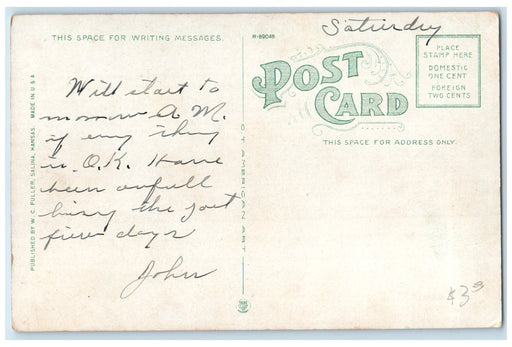 Saturdry
THIS SPACE FOR WRITING MESSAGES.
R-89048
POST
CARD
PLACE
STAMP HERE
DOMESTIC
ONE CENT
FOREIGN
TWO CENTS
THIS SPACE FOR ADDRESS ONLY.
Will start to
morrow A M.
if eny thing
is O.K. Have
been awfull
bussy the past
few days
John
PUBLISHED BY W. C. FULLER, SALINA, KANSAS. MADE IN U.S.A
C. T. AMERICAN ART
$3